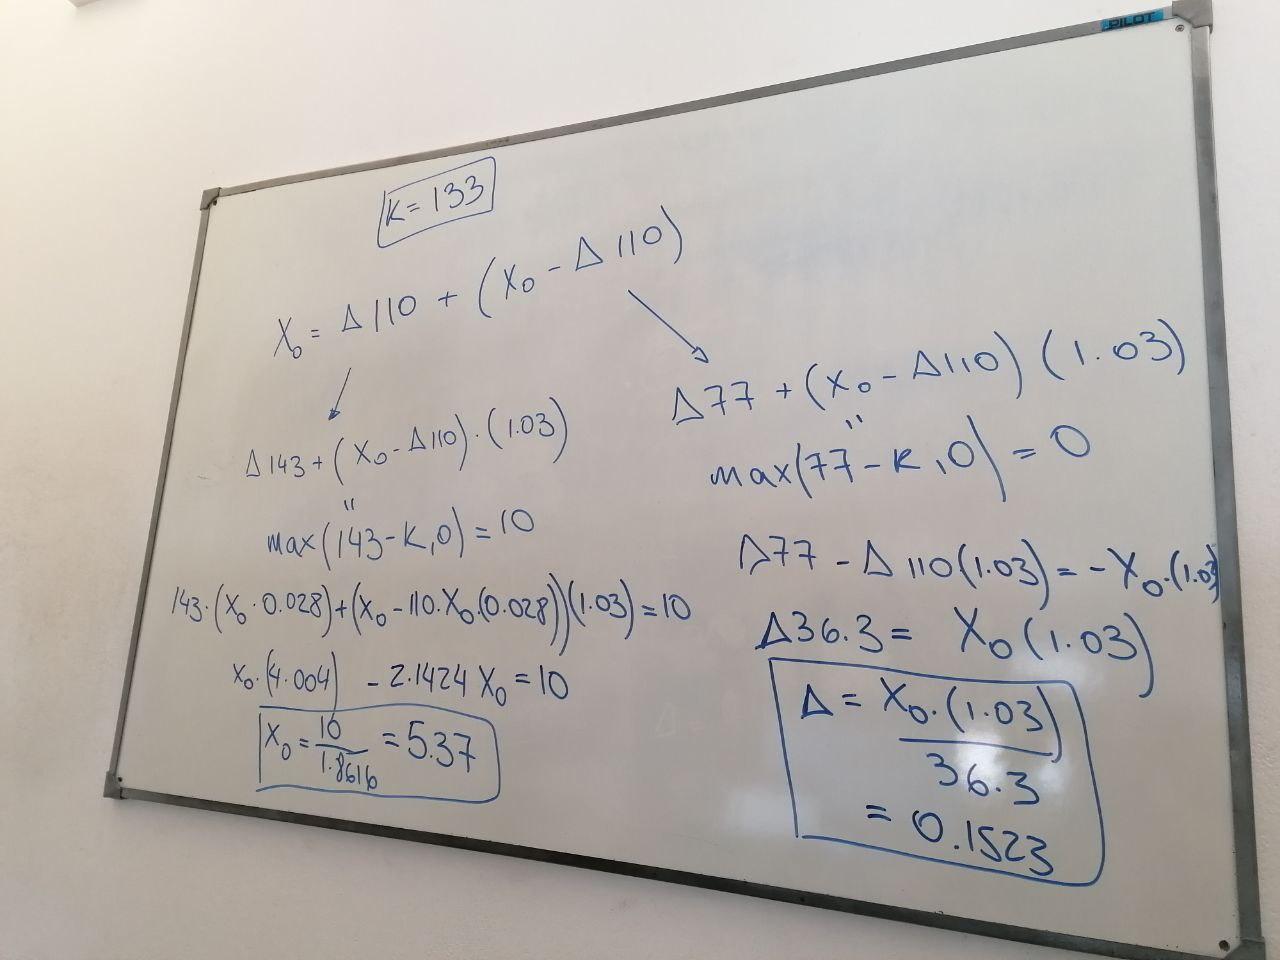 PILOT
K = 133
X₀ = Δ110 + (X₀ - Δ110)
Δ143 + (X₀ - Δ110)·(1.03)
"
max(143 - K, 0) = 10
143·(X₀·0.028) + (X₀ - 110·X₀·(0.028))(1.03) = 10
X₀·(4.004) - 2.1424 X₀ = 10
X₀ = 10/1.8616 = 5.37
Δ77 + (X₀ - Δ110)(1.03)
"
max(77 - K, 0) = 0
Δ77 - Δ110(1.03) = -X₀·(1.03)
Δ36.3 = X₀(1.03)
Δ = X₀·(1.03)/36.3
= 0.1523